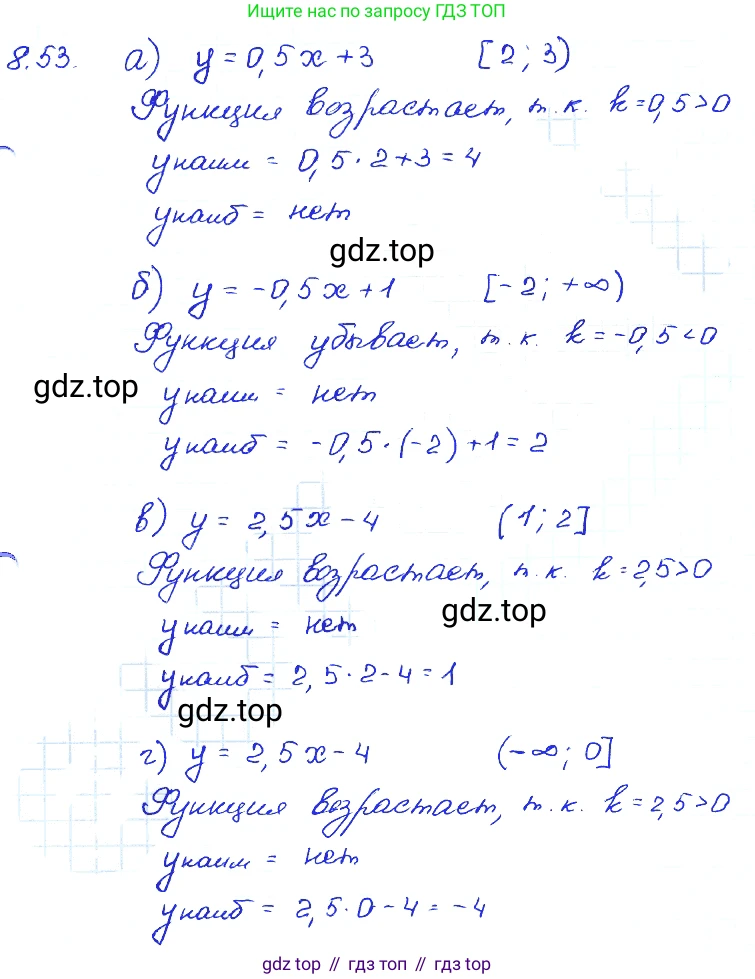 Ищите нас по запросу ГДЗ ТОП
8.53. а) y = 0,5x + 3 [2; 3)
Функция возрастает, т.к. k = 0,5 > 0
yнаим = 0,5 · 2 + 3 = 4
yнаиб = нет
gdz.top
б) y = -0,5x + 1 [-2; +∞)
Функция убывает, т.к. k = -0,5 < 0
gdz.top
yнаим = нет
yнаиб = -0,5 · (-2) + 1 = 2
в) y = 2,5x - 4 (1; 2]
Функция возрастает, т.к. k = 2,5 > 0
gdz.top
yнаим = нет
yнаиб = 2,5 · 2 - 4 = 1
gdz.top
г) y = 2,5x - 4 (-∞; 0]
Функция возрастает, т.к. k = 2,5 > 0
yнаим = нет
yнаиб = 2,5 · 0 - 4 = -4
gdz top // гдз топ // gdz top